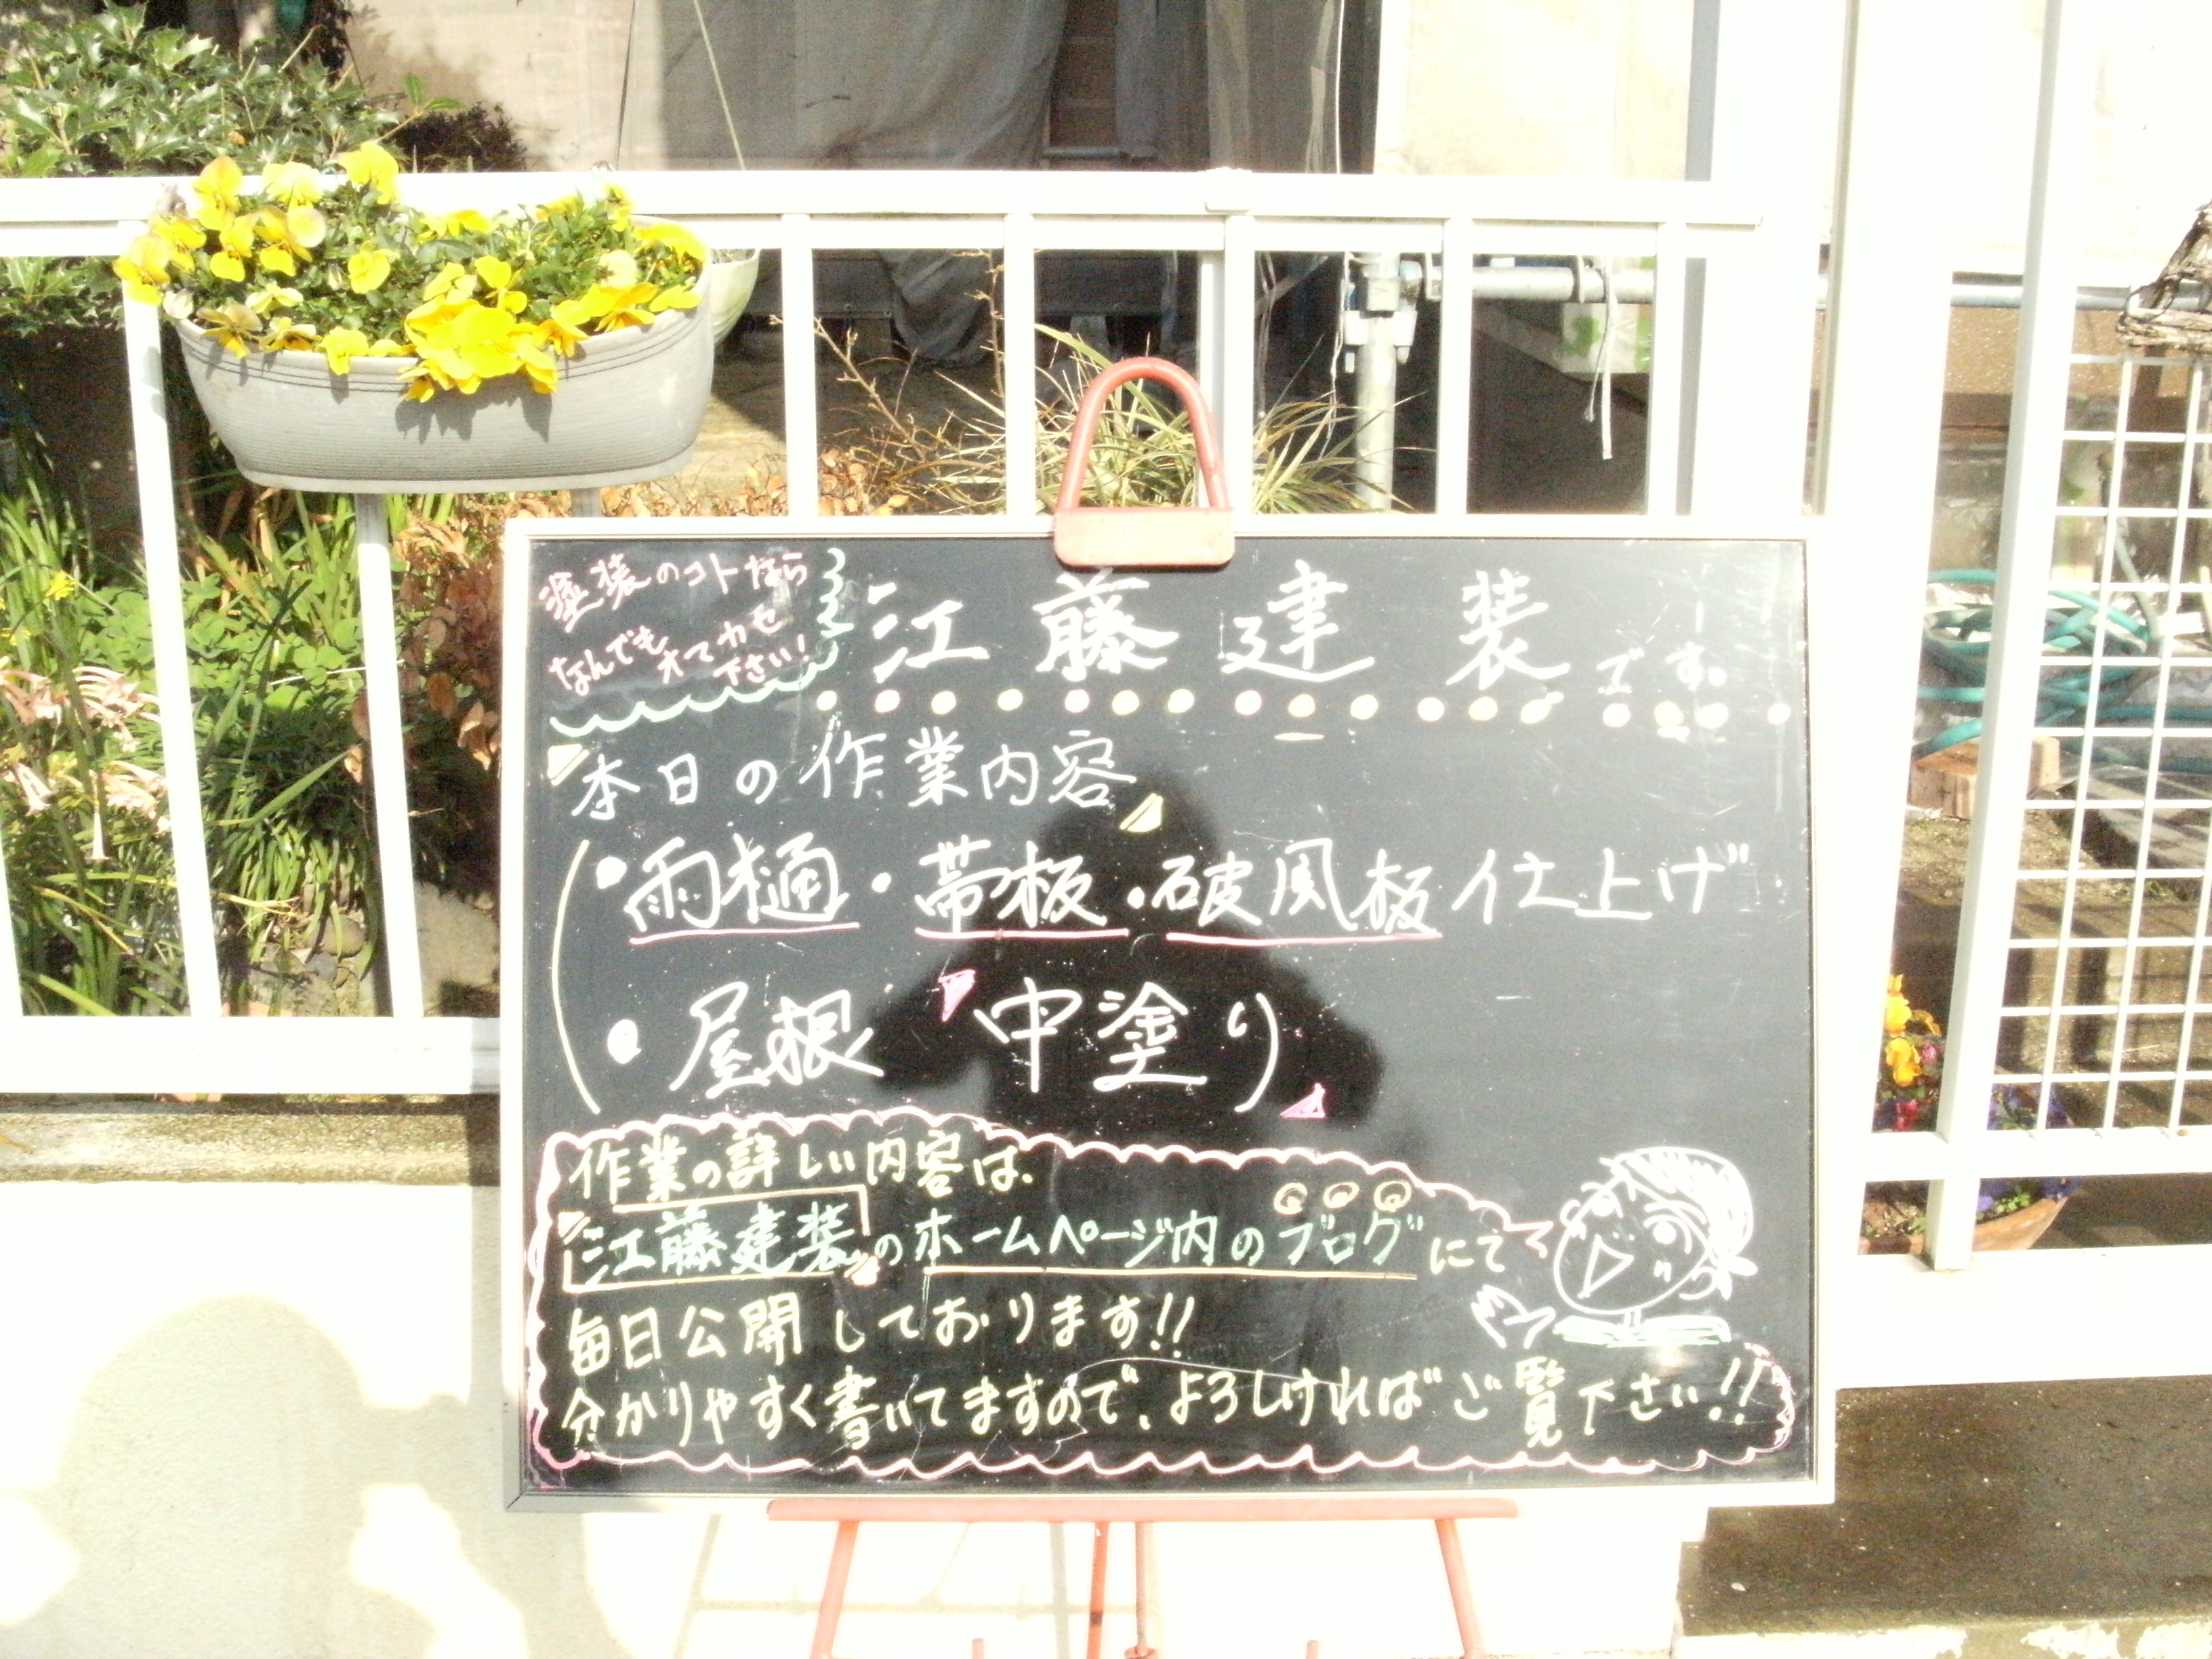 塗装のコトなら
なんでもオマカセ
下さい!
江藤建装です。
本日の作業内容
・雨樋・帯板・破風板仕上げ
・屋根 中塗り
作業の詳しい内容は、
江藤建装のホームページ内のブログにて
毎日公開しております!!
分かりやすく書いてますので、よろしければご覧下さい!!